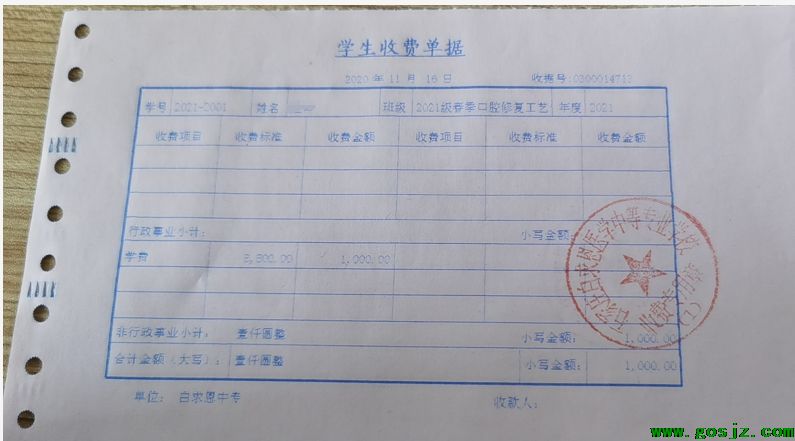 学生收费单据
2020 年 11 月 16 日 收据号:0300014713
学号 2021-2001 姓名 班级 2021级春季口腔修复工艺 年度 2021
收费项目 收费标准 收费金额 收费项目 收费标准 收费金额
行政事业小计: 小写金额:
学费 3,800.00 1,000.00
非行政事业小计: 壹仟圆整 小写金额: 1,000.00
合计金额(大写): 壹仟圆整 小写金额: 1,000.00
单位: 白求恩中专 收款人:
石家庄白求恩医学中等专业学校
收费专用章
(1)
www.gosjz.com